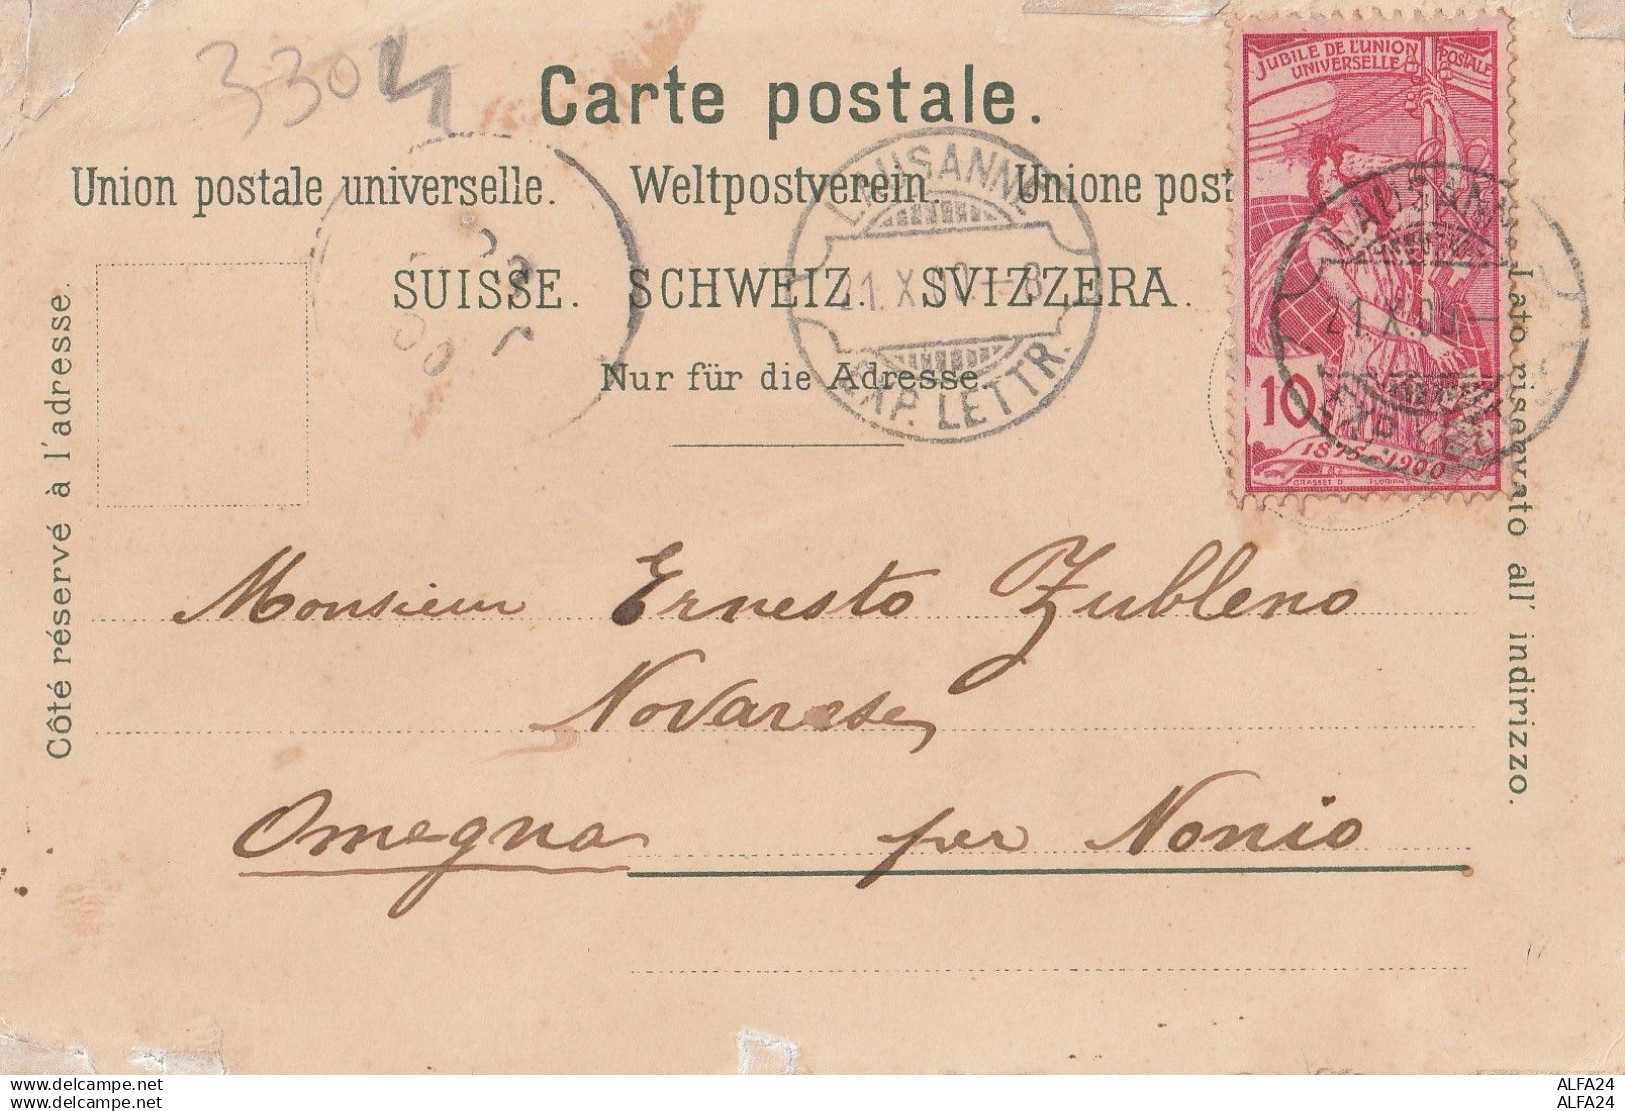 3304
Carte postale.
Union postale universelle. Weltpostverein. Unione post
SUISSE. SCHWEIZ. SVIZZERA.
Nur für die Adresse.
Côté réservé à l'adresse.
Lato riservato all' indirizzo.
JUBILÉ DE L'UNION POSTALE
UNIVERSELLE
10
1875-1900
GRASSET D. FLORIAN
LAUSANNE
21.X.00.-8
EXP. LETTR.
LAUSANNE
21.X.00-
EXP. LE
Monsieur Ernesto Zubleno
Novarese
Omegna per Nonio
www.delcampe.net
www.delcampe.net
ALFA24
ALFA24